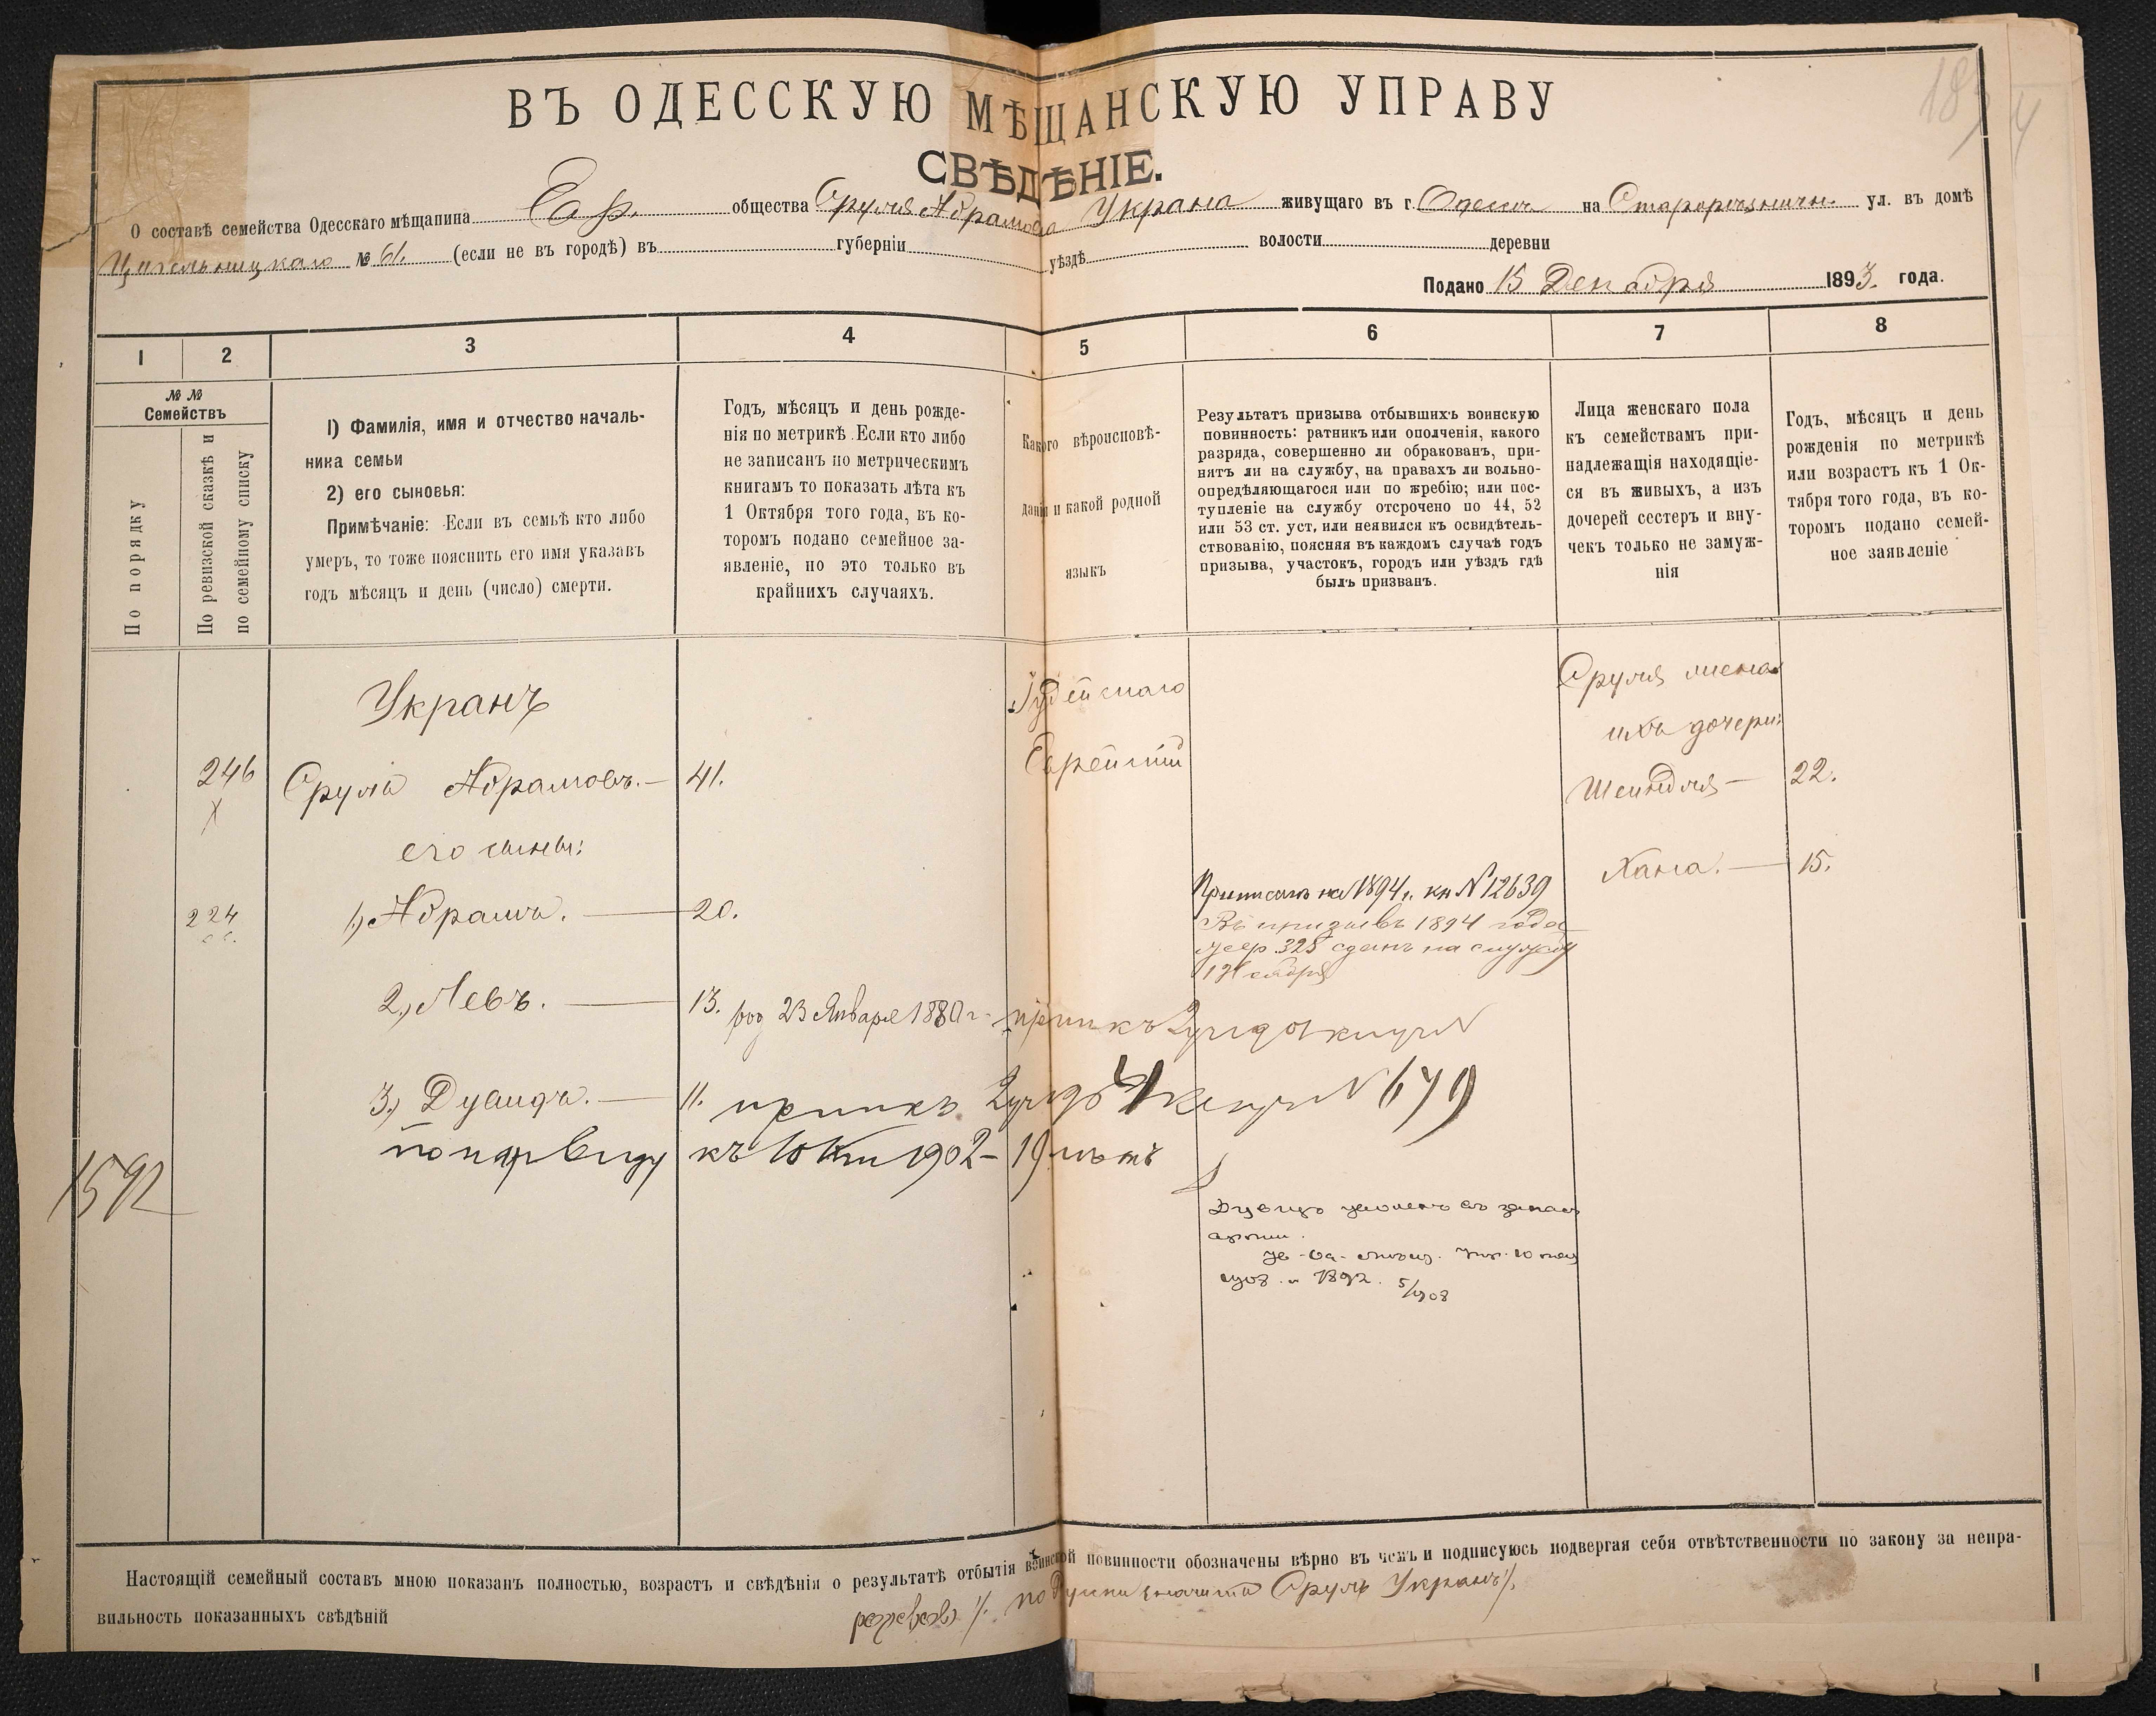 ВЪ ОДЕССКУЮ МѢЩАНСКУЮ УПРАВУ
СВѢДѢНІЕ.
О составѣ семейства Одесскаго мѣщанина Евр. общества Сруля Абрамова Украна живущаго въ г. Одессѣ на Старорѣзничн. ул. въ домѣ
Цигельницкаго № 61. (если не въ городѣ) въ губерніи уѣздѣ волости деревни
Подано 15 Декабря 1893. года.
1 2 3 4 5 6 7 8
№ №
Семействъ
По порядку
По ревизской сказкѣ и
по семейному списку
1) Фамилія, имя и отчество началь-
ника семьи
2) его сыновья:
Примѣчаніе: Если въ семьѣ кто либо
умеръ, то тоже пояснить его имя указавъ
годъ мѣсяцъ и день (число) смерти.
Годъ, мѣсяцъ и день рожде-
нія по метрикѣ. Если кто либо
не записанъ по метрическимъ
книгамъ то показать лѣта къ
1 Октября того года, въ ко-
торомъ подано семейное за-
явленіе, но это только въ
крайнихъ случаяхъ.
Какого вѣроисповѣ-
данія и какой родной
языкъ
Результатъ призыва отбывшихъ воинскую
повинность: ратникъ или ополченія, какого
разряда, совершенно ли обракованъ, при-
нятъ ли на службу, на правахъ ли вольно-
опредѣляющагося или по жребію; или пос-
тупленіе на службу отсрочено по 44, 52
или 53 ст. уст, или неявился къ освидѣтель-
ствованію, поясняя въ каждомъ случаѣ годъ
призыва, участокъ, городъ или уѣздъ гдѣ
былъ призванъ.
Лица женскаго пола
къ семействамъ при-
надлежащія находящіе-
ся въ живыхъ, а изъ
дочерей сестеръ и вну-
чекъ только не замуж-
нія
Годъ, мѣсяцъ и день
рожденія по метрикѣ
или возрастъ къ 1 Ок-
тября того года, въ ко-
торомъ подано семей-
ное заявленіе
Укранъ
Іудейскаго
Еврейскій
Сруля
ихъ дочери:
246 Сруль Абрамовъ. — 41.
Шейндля — 22.
его сыны:
Хана. — 15.
224 1) Абрамъ. — 20.
Приписанъ на 1894 г. кн N 12639
Въ призывѣ 1894 года
жер. 325 сданъ на службу
2,) Левъ. — 13. род 23 Января 1880 г.
3,) Дувидъ. — 11. N 679
по нар виду къ 1 Окт 1902 – 19 лѣтъ
1592
Дувидъ уволенъ въ запасъ
арміи.
1892. 5/1908
Настоящій семейный составъ мною показанъ полностью, возрастъ и свѣдѣнія о результатѣ отбытія воинской повинности обозначены вѣрно въ чемъ и подписуюсь подвергая себя отвѣтственности по закону за непра-
вильность показанныхъ свѣдѣній
по Руски значитъ Сруль Укранъ